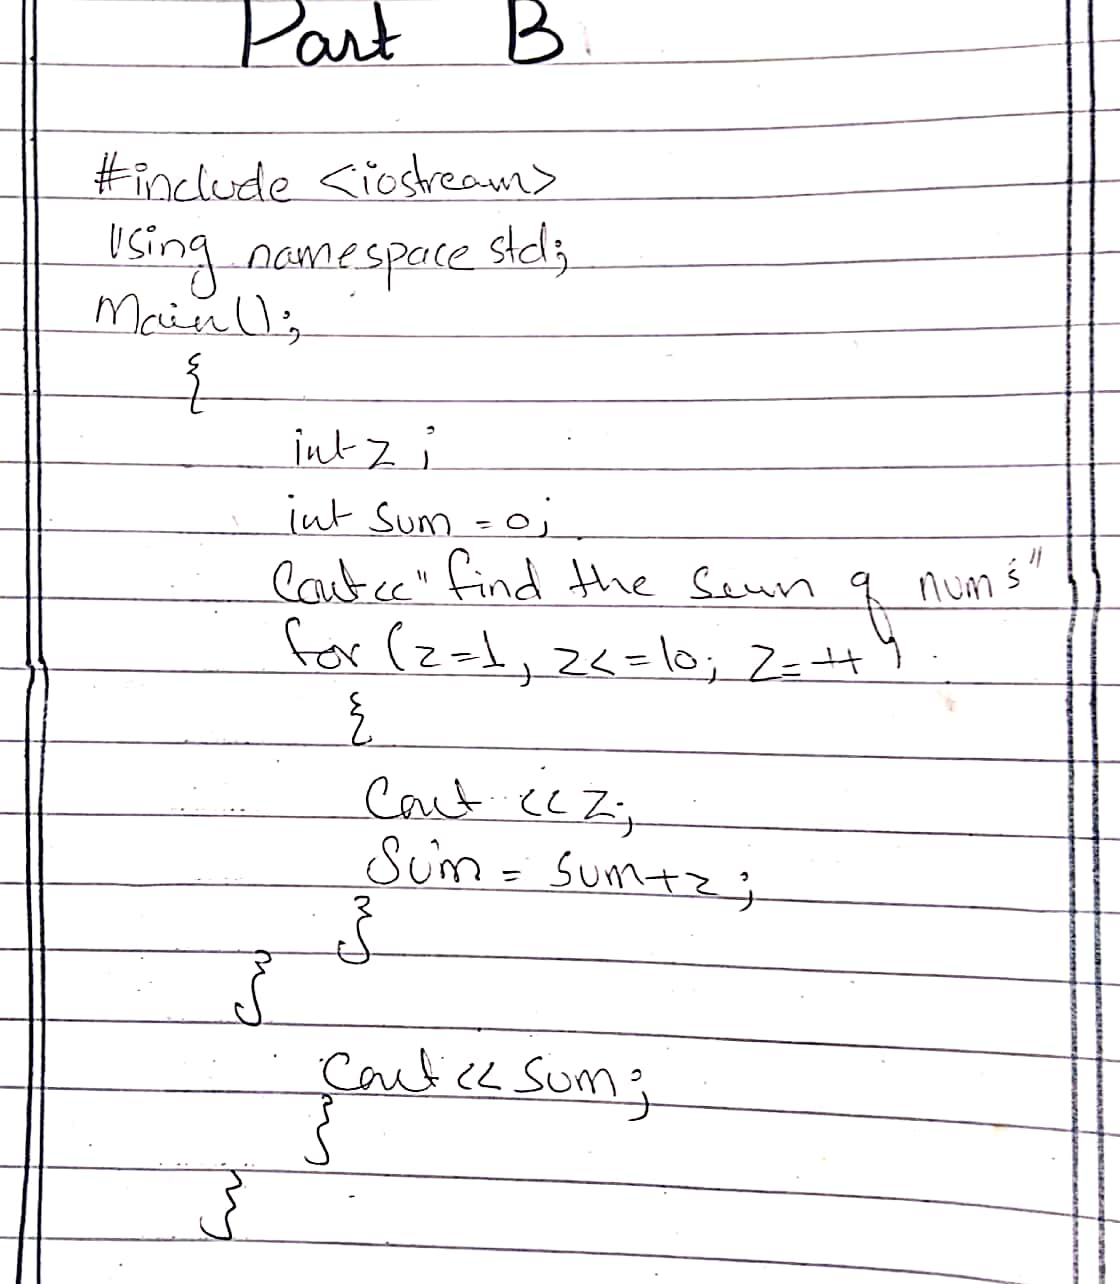 Part B
#include <iostream>
Using namespace std;
Main();
{
int z ;
int sum = 0;
Cout<<" find the sum of nums"
for (z=1, z<=10; z=++)
{
Cout << z;
Sum = sum+z ;
}
}
Cout << sum;
}
}